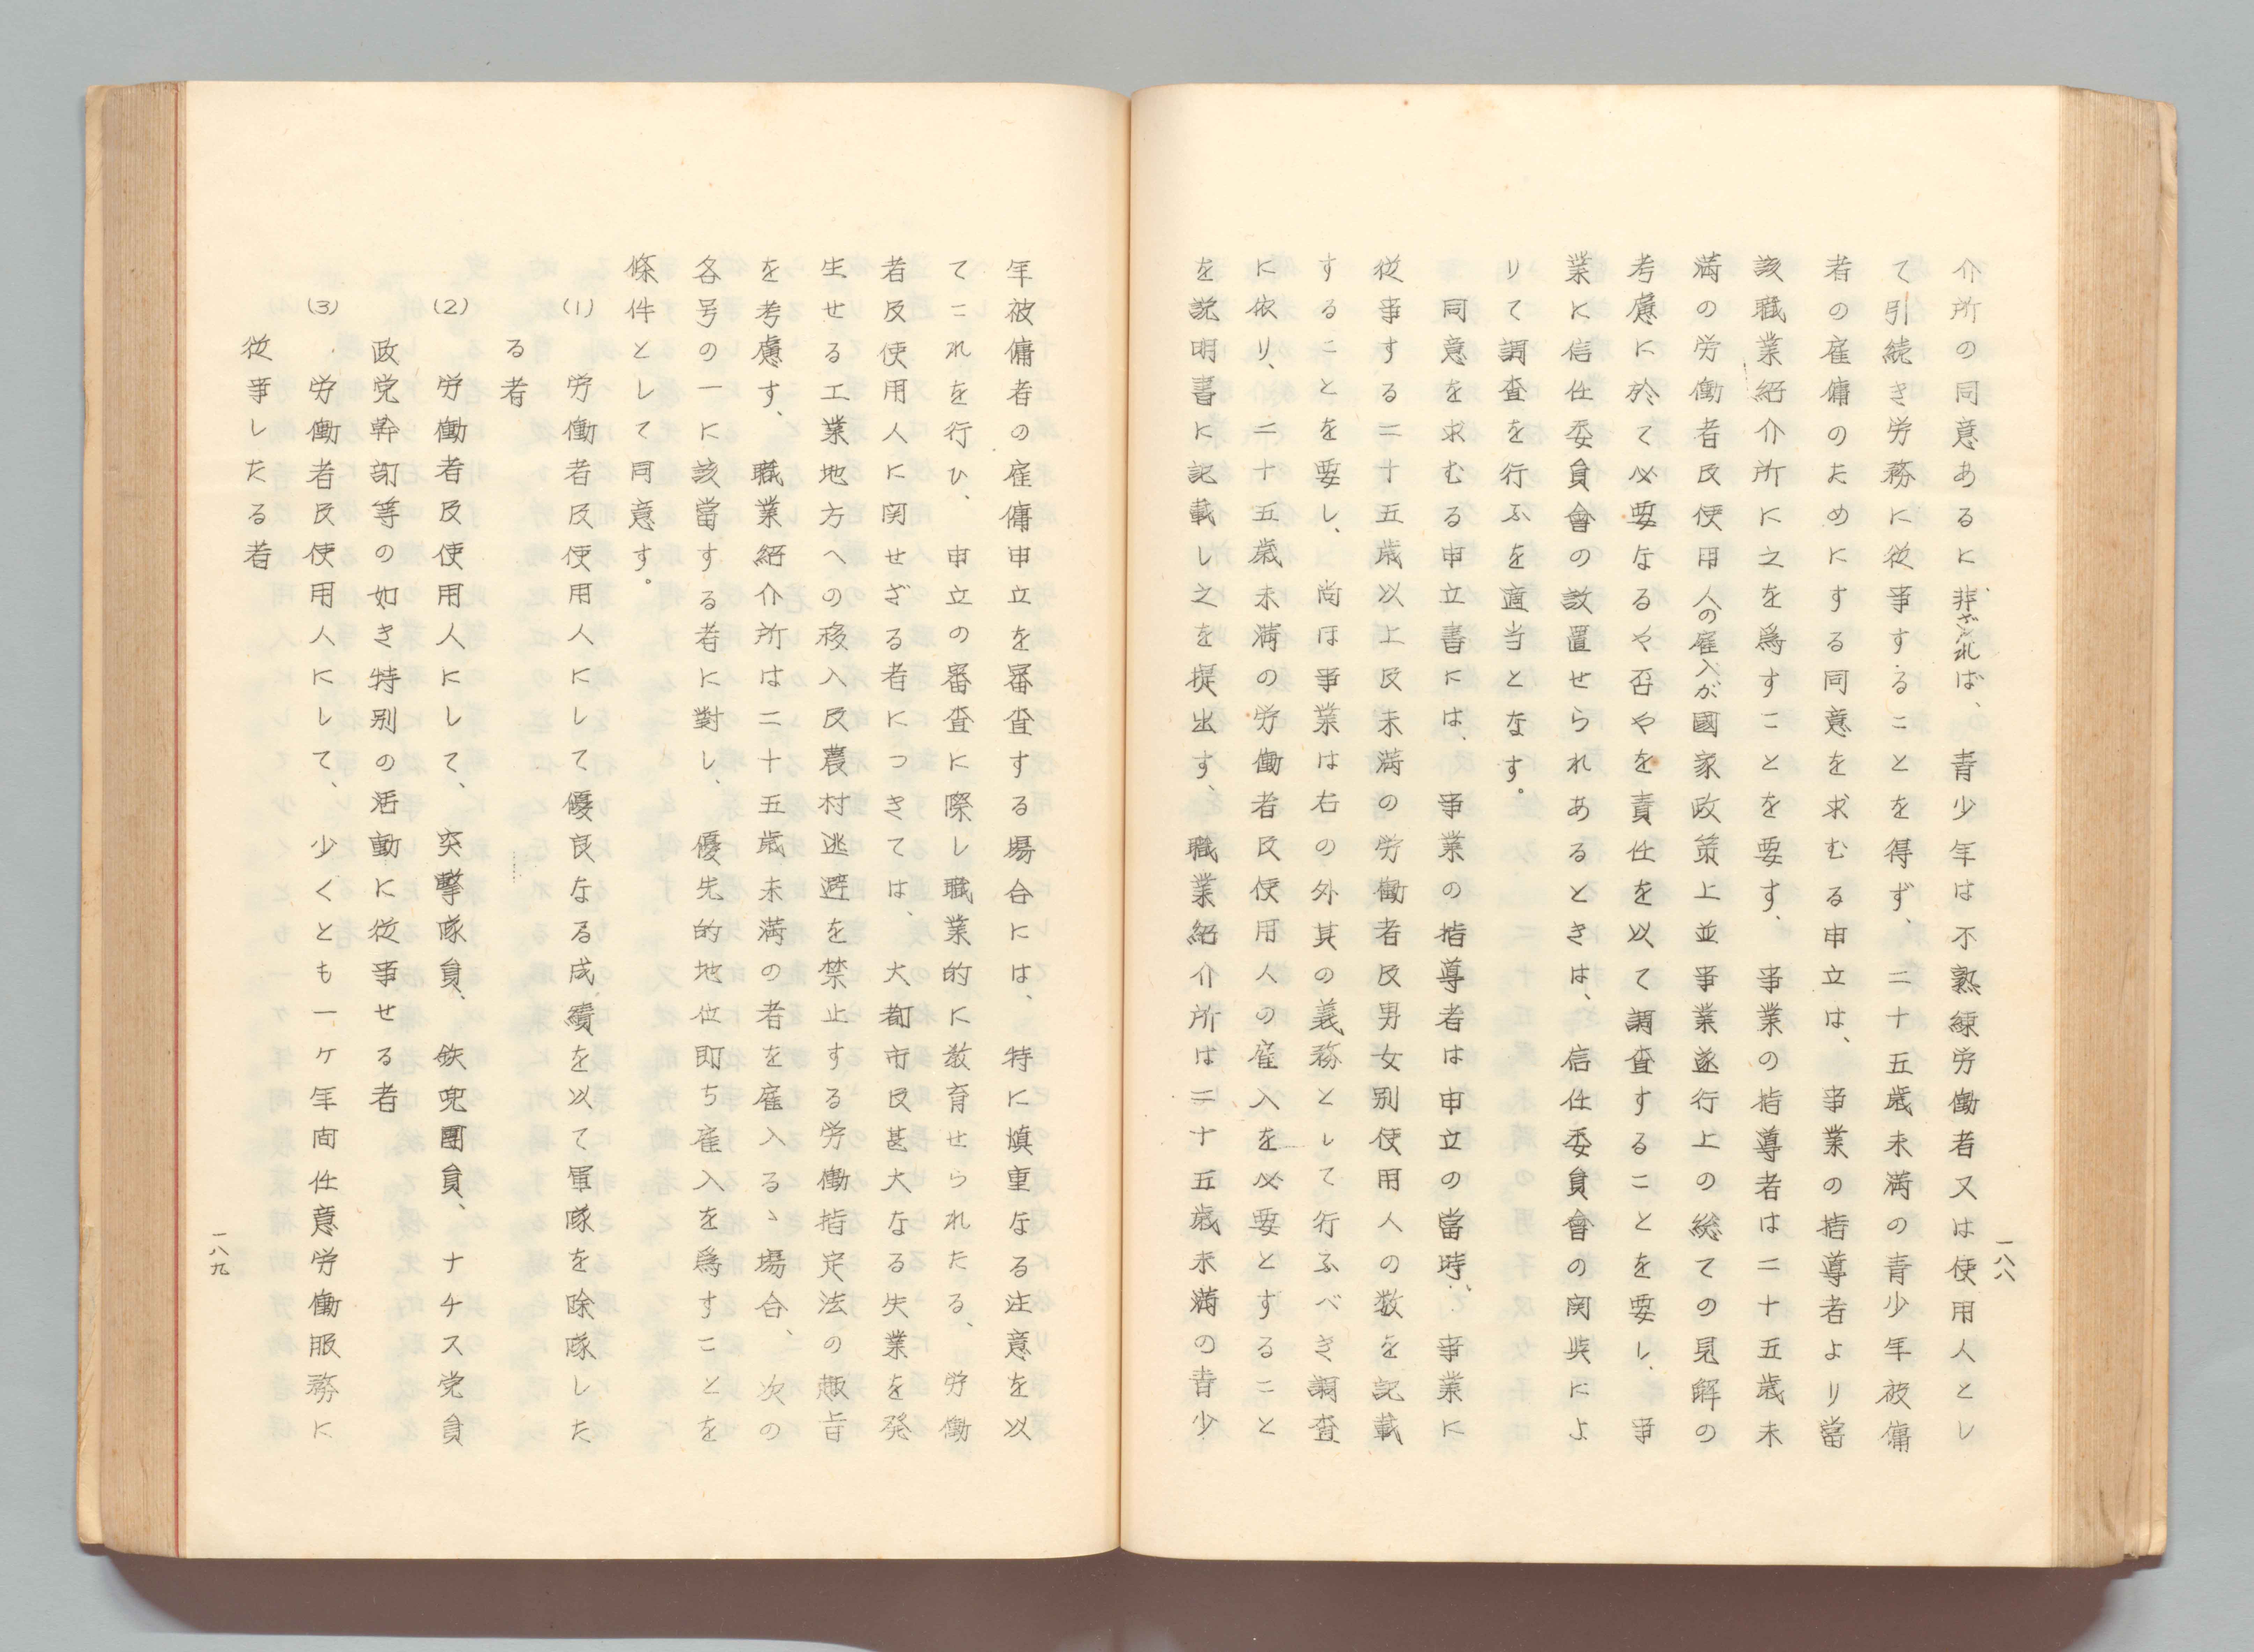 一八八
介所の同意あるに非ざれば、青少年は不熟練労働者又は使用人とし
て引続き労務に従事することを得ず、二十五歳未満の青少年被傭
者の雇傭のためにする同意を求むる申立は、事業の指導者より當
該職業紹介所に之を爲すことを要す、事業の指導者は二十五歳未
満の労働者及使用人の雇入が國家政策上並事業遂行上の総ての見解の
考慮に於て必要なるや否やを責任を以て調査することを要し、事
業に信任委員會の設置せられあるときは、信任委員會の関与によ
りて調査を行ふを適当となす。
同意を求むる申立書には、事業の指導者は申立の當時、事業に
従事する二十五歳以上及未満の労働者及男女別使用人の数を記載
することを要し、尚ほ事業は右の外其の義務として行ふべき調査
に依り、二十五歳未満の労働者及使用人の雇入を必要とすること
を説明書に記載し之を提出す、職業紹介所は二十五歳未満の青少
年被傭者の雇傭申立を審査する場合には、特に慎重なる注意を以
てこれを行ひ、申立の審査に際し職業的に教育せられたる、労働
者及使用人に関せざる者につきては、大都市及甚大なる失業を発
生せる工業地方への移入及農村逃避を禁止する労働指定法の趣旨
を考慮す、職業紹介所は二十五歳未満の者を雇入るゝ場合、次の
各号の一に該當する者に對し、優先的地位即ち雇入を爲すことを
條件として同意す。
(1) 労働者及使用人にして、優良なる成績を以て軍隊を除隊した
る者
(2) 労働者及使用人にして、突撃隊員、鉄兜團員、ナチス党員
政党幹部等の如き特別の活動に従事せる者
(3) 労働者及使用人にして、少くとも一ケ年間任意労働服務に
従事したる者
一八九